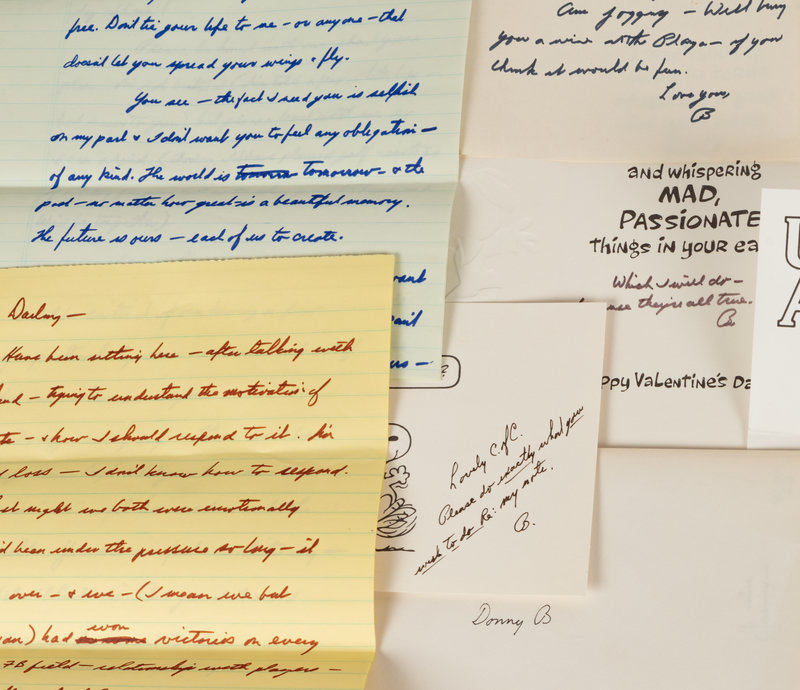 free. Don't tie your life to me - or anyone - that
doesn't let you spread your wings & fly.
You see - the fact I need you is selfish
on my part & I don't want you to feel any obligation -
of any kind. The world is tomorrow - & the
past - no matter how great - is a beautiful memory.
The future is ours - each of us to create.
want
Am jogging - Will buy
you a wine at the Playa - if you
think it would be fun.
Love you,
B
and whispering
MAD,
PASSIONATE
things in your ea
Which I will do -
use they're all true.
B.
ppy Valentine's Da
U
A
Darling -
Have been sitting here - after talking with
- trying to understand the motivation of
- & how I should respond to it. I'm
loss - I don't know how to respond.
night we both were emotionally
been under the pressure so long - it
over - & we - (I mean we but
) had won victories on every
FB field - relationship with players -
?
Lovely C. of C.
Please do exactly what you
wish to do Re: my note.
B.
Donny B